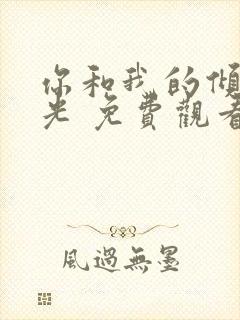 你和我的傾
光 免費觀看
風過無墨